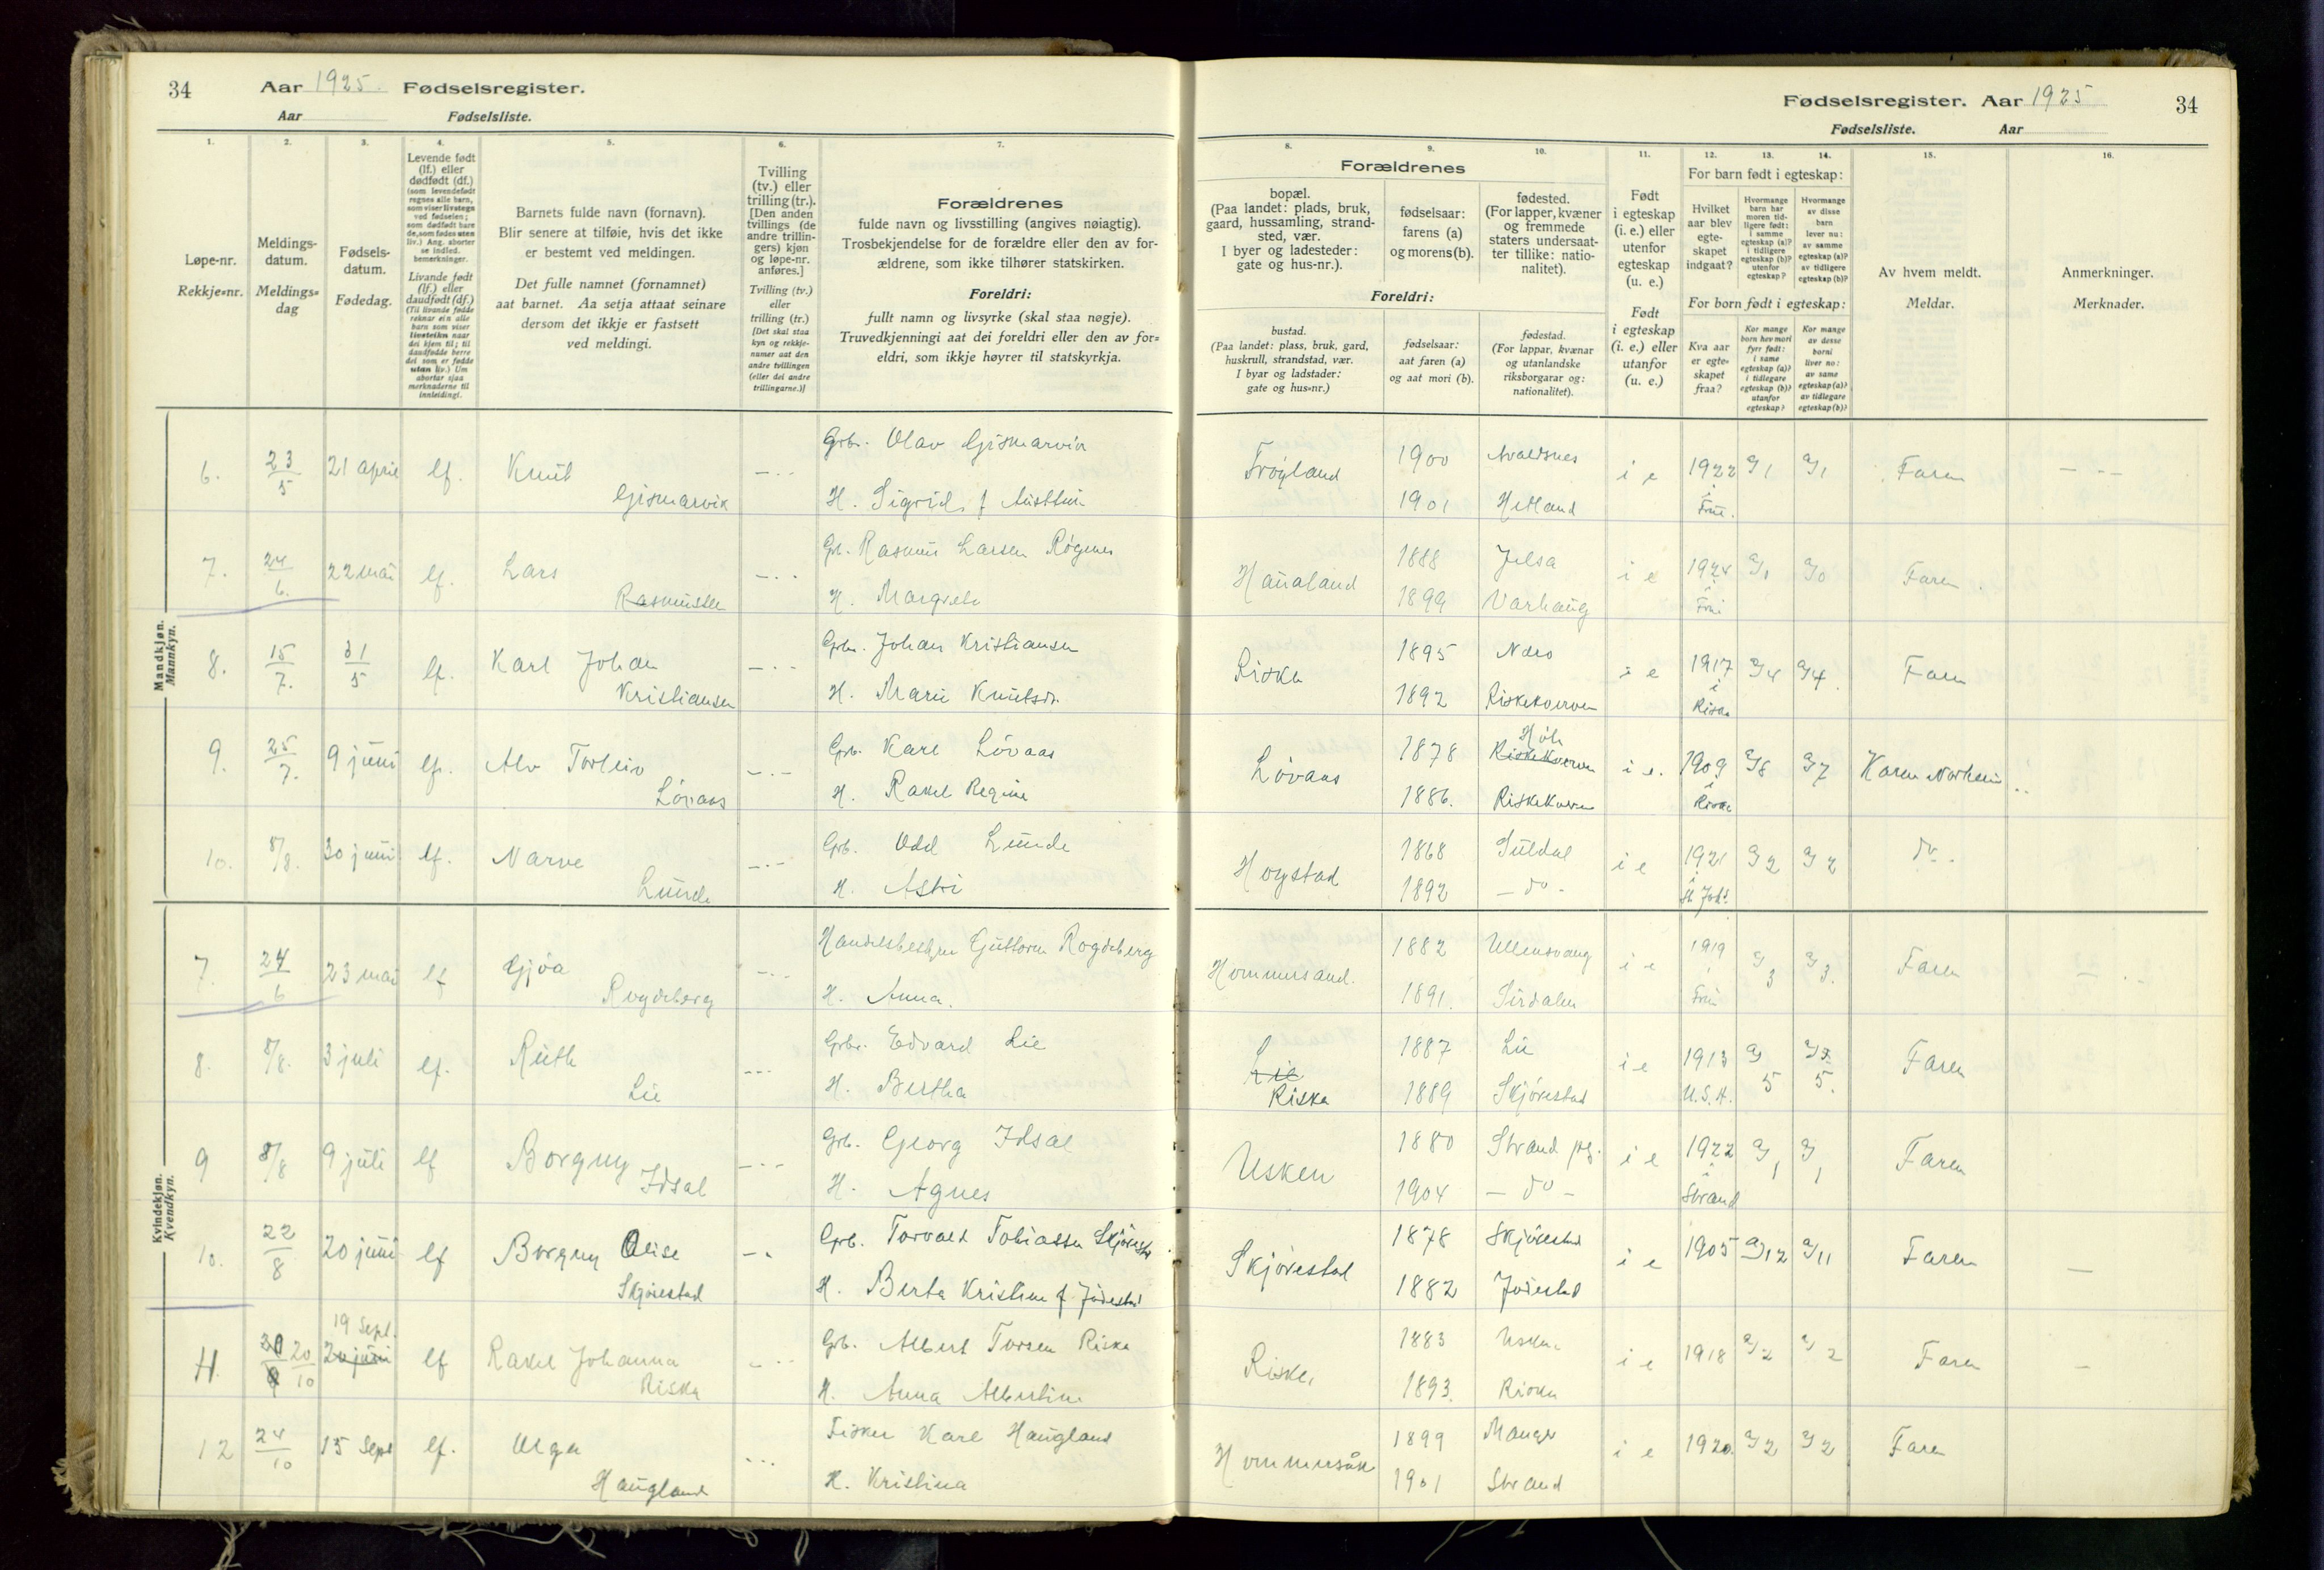 34
Aar 1925. Fødselsregister.
Aar Fødselsliste.
1.
2.
3.
4.
5.
6.
7.
Løpe-nr.
Rekkje-nr.
Meldings-
datum.
Meldings-
dag
Fødsels-
datum.
Fødedag.
Levende født
(lf.) eller
dødfødt (df.)
(som levendefødt
regnes alle barn,
som viser livstegn
ved fødselen;
som dødfødt bare
de, som fødes uten
liv.) Ang. aborter
se indled.
bemerkninger.
Livande født
(lf.) eller
daudfødt (df.)
(Til livande fødde
reknar ein alle
barn som viser
livsteikn naar
dei kjem til; til
daudfødde berre
dei som er fødde
utan liv.) Um
abortar sjaa
merknaderne til
innleidingi.
Barnets fulde navn (fornavn).
Blir senere at tilføie, hvis det ikke
er bestemt ved meldingen.
Det fulle namnet (fornamnet)
aat barnet. Aa setja attaat seinare
dersom det ikkje er fastsett
ved meldingi.
Tvilling
(tv.) eller
trilling (tr.).
[Den anden
tvillings (de
andre trillin-
gers) kjøn
og løpe-nr.
anføres.]
Tvilling (tv.)
eller
trilling (tr.)
[Det skal staa
kyn og rekkje-
numer aat den
andre tvillingen
(eller dei andre
trillingarne.)]
Forældrenes
fulde navn og livsstilling (angives nøiagtig).
Trosbekjendelse for de forældre eller den av for-
ældrene, som ikke tilhører statskirken.
Foreldri:
fullt namn og livsyrke (skal staa nøgje).
Truvedkjenningi aat dei foreldri eller den av for-
eldri, som ikkje høyrer til statskyrkja.
Mandkjøn.
Mannkyn.
6. 23/5 21 april lf. Knut Gismarvik
Grb. Olav Gismarvik
H. Sigrid f
7. 24/6. 22 mai lf. Lars Rasmussen
Gb. Rasmus Larsen Røgenes
H. Margrete
8. 15/7. 31/5 lf. Karl Johan Kristiansen
Grbr. Johan Kristiansen
H. Marie Knutsdr.
9. 25/7. 9 juni lf. Alv Torleiv Lövaas
Grb. Karl Lövaas
H. Rakel Regine
10. 8/8. 30 juni lf. Narve Lunde
Grb. Odd Lunde
H. Astri
Kvindekjøn.
Kvendkyn.
7. 24/6 23 mai lf Gjøa Rogdeberg
Handelsbestyrer Guttorm Rogdeberg
H. Anna.
8. 8/8. 3 juli lf. Ruth Lie
Grbr. Edvard Lie
H. Bertha
9 8/8 9 juli lf Borgny Idsal
Grb. Georg Idsal
H. Agnes
10. 22/8 20 juni lf Borgny Olise Skjörestad
Grb. Torvald Tobiassen Skjörestad
H. Berta Kristine f. Jödestad
19 Sept.
11. 20/10 20 juni lf Rakel Johanna Riska
Grb. Albert Torsen Riska
H. Anna Albertine
12 24/10 15 Sept lf. Olga Haugland
Fisker Karl Haugland
H. Kristina
Fødselsregister. Aar 1925
34
Fødselsliste. Aar
8.
9.
10.
11.
12.
13.
14.
15.
16.
Forældrenes
bopæl.
(Paa landet: plads, bruk,
gaard, hussamling, strand-
sted, vær.
I byer og ladesteder:
gate og hus-nr.).
fødselsaar:
farens (a)
og morens (b).
fødested.
(For lapper, kvæner
og fremmede
staters undersaat-
ter tillike: natio-
nalitet).
Foreldri:
bustad.
(Paa landet: plass, bruk, gard,
huskrull, strandstad, vær.
I byar og ladstader:
gate og hus-nr.)
fødselsaar:
aat faren (a)
og aat mori (b).
fødestad.
(For lappar, kvænar
og utanlandske
riksborgarar og:
nationalitet).
Født
i egteskap
(i. e.) eller
utenfor
egteskap
(u. e.)
Født
i egteskap
(i. e.) eller
utanfor
(u. e.)
For barn født i egteskap:
Hvilket
aar blev
egte-
skapet
indgaat?
Hvormange
barn har
moren tid-
ligere født:
i samme
egteskap (a)?
i tidligere
egteskap (b)?
utenfor
egteskap?
Hvormange
av disse
barn
lever nu:
av samme
egteskap (a)?
av tidligere
egteskap (b)?
For born født i egteskap:
Kva aar
er egte-
skapet
fraa?
Kor mange
born hev mori
fyrr født:
i same
egteskap (a)?
i tidlegare
egteskap (b)?
utanfor
egteskap?
Kor mange
av desse
borni
liver no:
av same
egteskap (a)?
av tidlegare
egteskap (b)?
Av hvem meldt.
Meldar.
Anmerkninger.
Merknader.
Frøyland 1900 Avaldsnes i e 1922 a/1 a/1 Faren
1901 Hetland
Haualand 1888 Jelsa i e 1924 a/0 a/0 Faren
1899 Varhaug
Riska 1895 Næro i e 1917 a/4 a/4 Faren
1892 Riskekvernen i Riska
Höle
Lövaas 1878 Riskekvernen i e. 1909 a/8 a/7 Karen Norheim
1886. Riskekvernen i Riska
Hogstad 1868 Suldal i e 1921 a/2 a/2 do.
1892 - do -
Hommersand. 1882 Ullensvang i e 1919 a/3 a/3. Faren
1891. Sirdalen
Lie 1887 Lie i e 1913 a/5 a/5. Faren
Riska 1889 Skjörestad U.S.A.
Usken 1880 Strand pg. i e 1922 a/1 a/1 Faren
1904 - do - i Strand
Skjörestad 1878 Skjörestad i e 1905 a/12 a/11 Faren
1882 Jödestad
Riska 1883 Usken i e 1918 a/2 a/2 Faren
1893. Riska
Hommersåk 1899 Manger i e 1920. a/2 a/2 Faren
1901 Strand